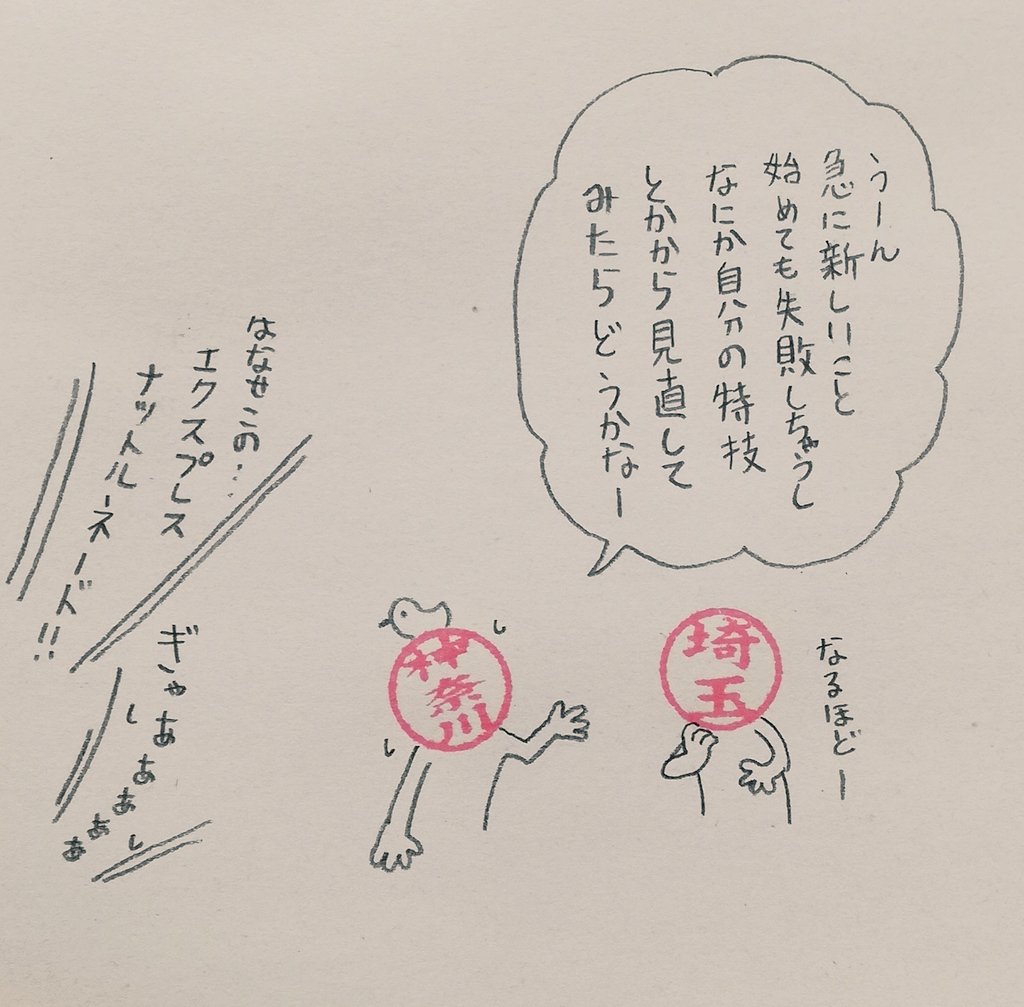 うーん
急に新しいこと
始めても失敗しちゃうし
なにか自分の特技
とかから見直して
みたらどうかなー
なるほどー
埼玉
神奈川
はなせこの…
エクスプレス
ナットルネード!!
ぎゃあああああ